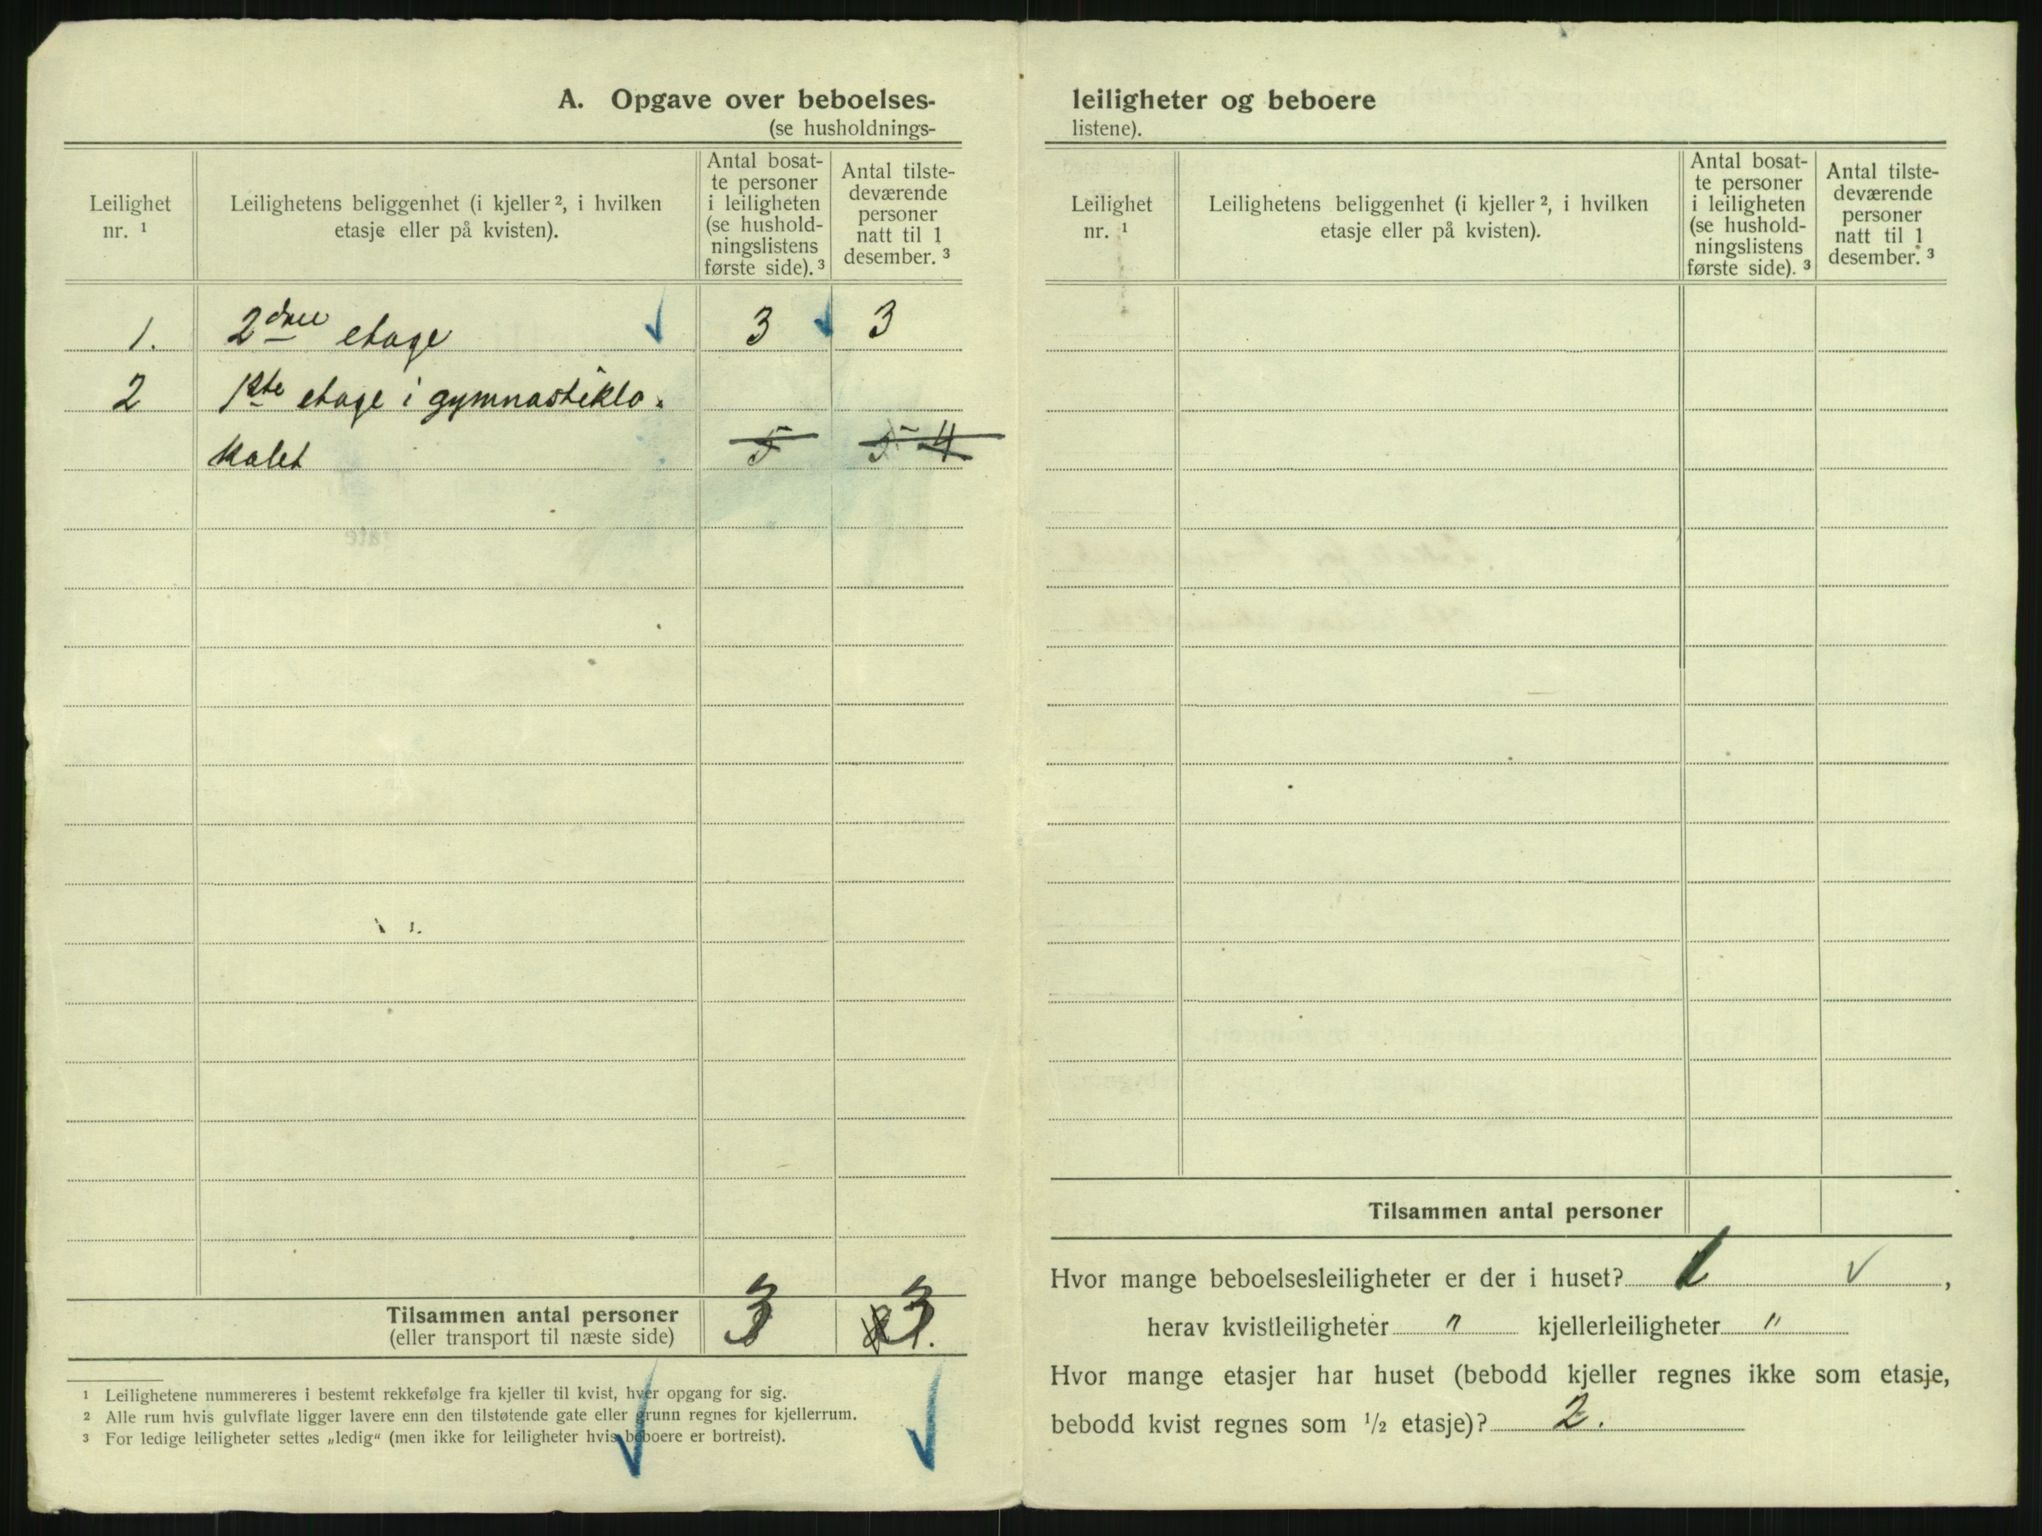 A. Opgave over beboelses-
(se husholdnings-
Leilighet nr. 1
Leilighetens beliggenhet (i kjeller 2, i hvilken
etasje eller på kvisten).
Antal bosat-
te personer
i leiligheten
(se hushold-
ningslistens
første side). 3
Antal tilste-
deværende
personer
natt til 1
desember. 3
1. 2den etage 3 3
2 1ste etage i gymnastiklo-
kalet 5 5 4
Tilsammen antal personer 3 3
(eller transport til næste side)
1 Leilighetene nummereres i bestemt rekkefølge fra kjeller til kvist, hver opgang for sig.
2 Alle rum hvis gulvflate ligger lavere enn den tilstøtende gate eller grunn regnes for kjellerrum.
3 For ledige leiligheter settes „ledig“ (men ikke for leiligheter hvis beboere er bortreist).
leiligheter og beboere
listene).
Leilighet nr. 1
Leilighetens beliggenhet (i kjeller 2, i hvilken
etasje eller på kvisten).
Antal bosat-
te personer
i leiligheten
(se hushold-
ningslistens
første side). 3
Antal tilste-
deværende
personer
natt til 1
desember. 3
Tilsammen antal personer
Hvor mange beboelsesleiligheter er der i huset? 1 ,
herav kvistleiligheter " kjellerleiligheter "
Hvor mange etasjer har huset (bebodd kjeller regnes ikke som etasje,
bebodd kvist regnes som 1/2 etasje)? 2.